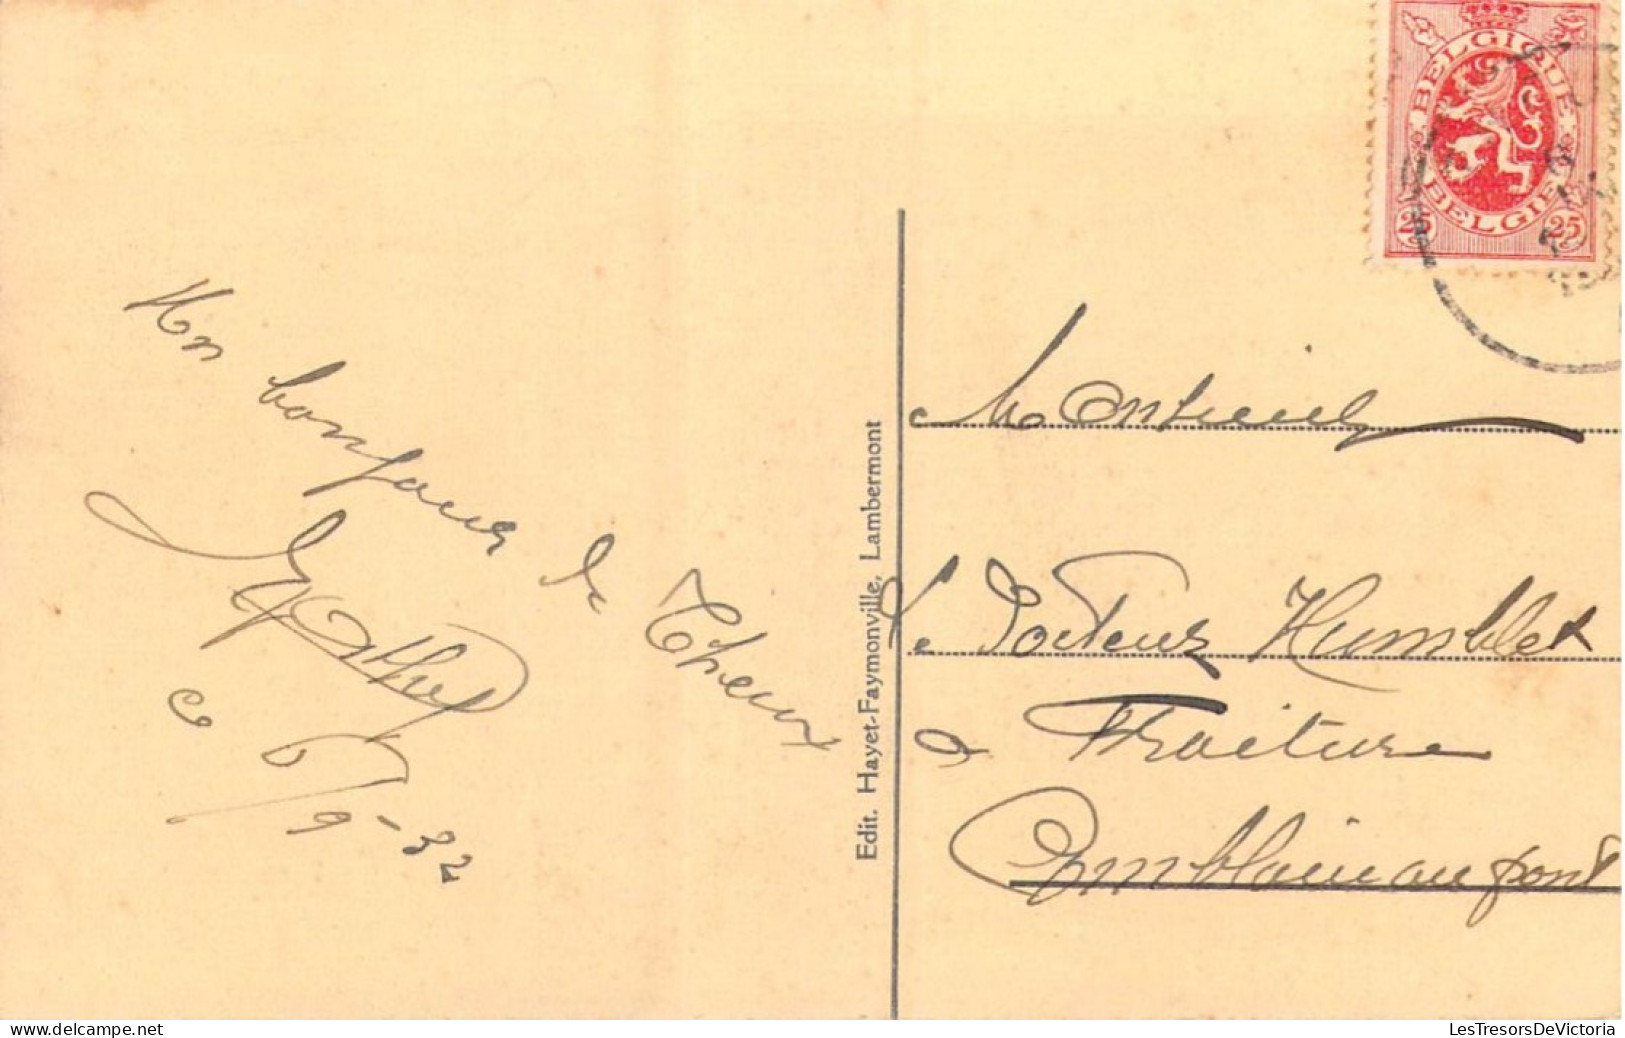 BELGIQUE
BELGIË
25 25
Mon bonjour de Theux
ce 6/9-32
Edit. Hayet-Faymonville, Lambermont
Monsieur
Le Docteur Humblet
a Fraiture
Comblain au pont
www.delcampe.net
LesTresorsDeVictoria